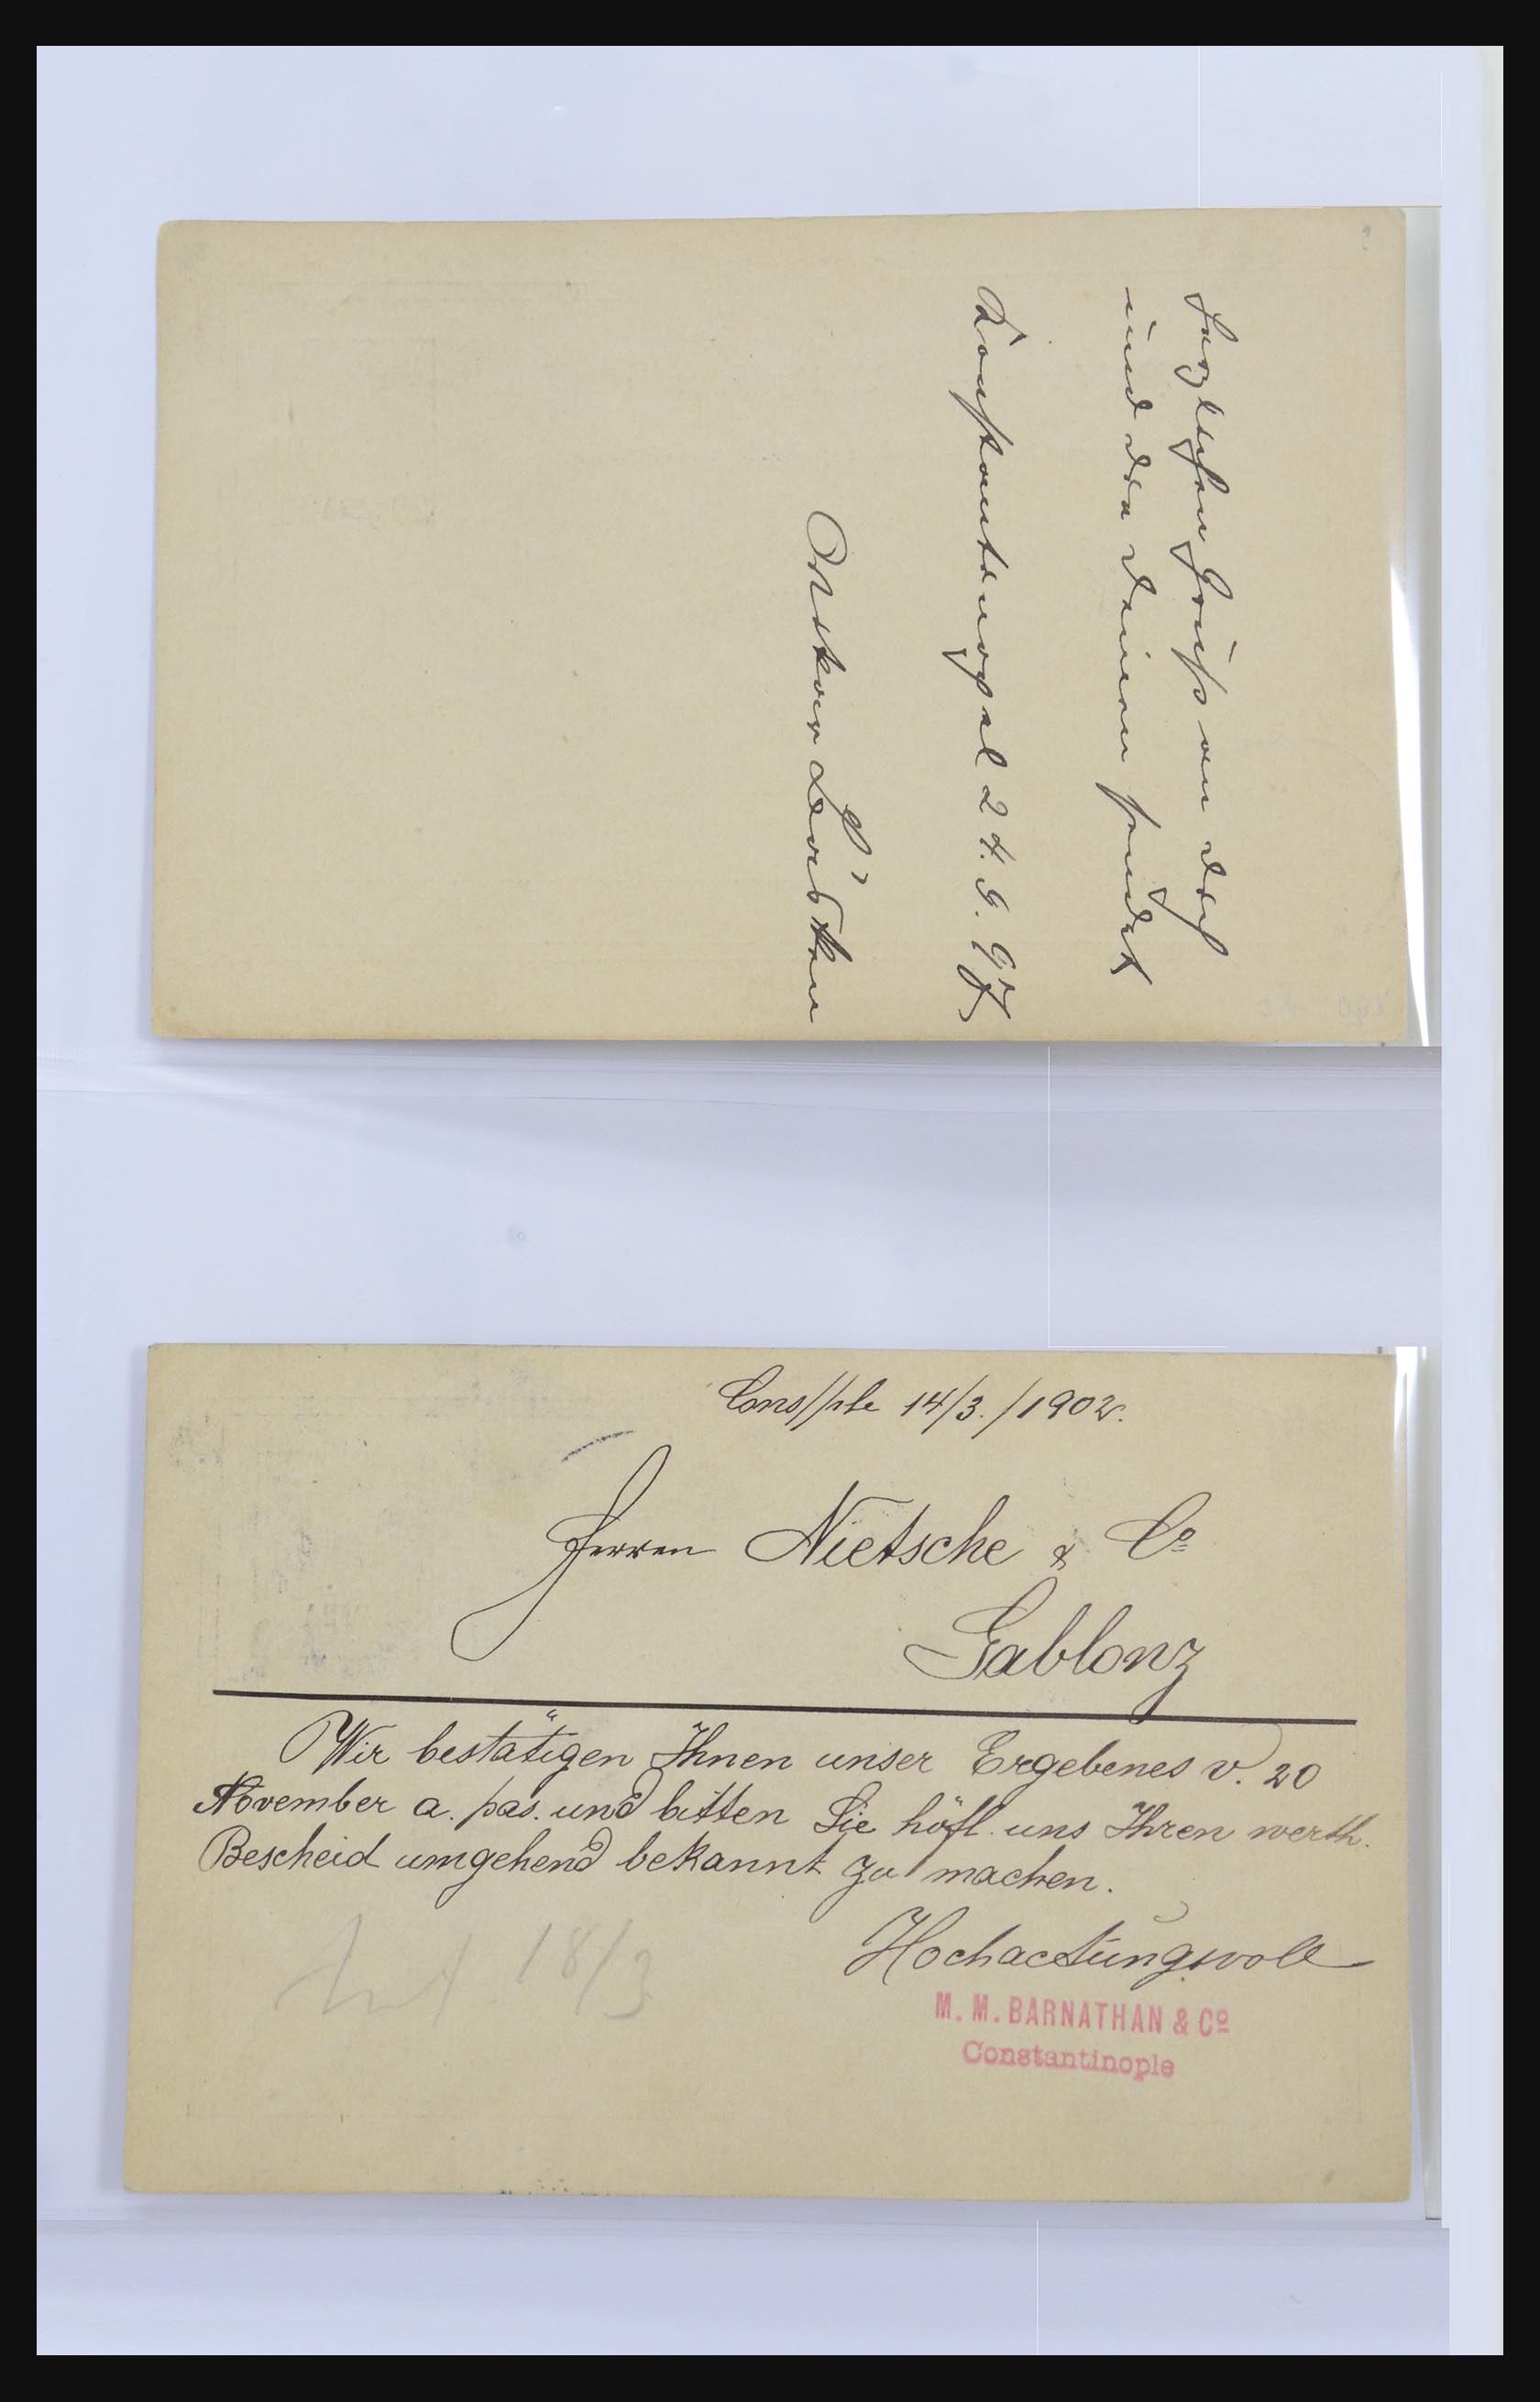 Herzlichen Gruß an Dich
und die Deinen sendet
Konstantinopel 24. 9. 97
Oskar
Cons/ple 14/3./1902.
Herren Nietsche & Co
Gablonz
Wir bestätigen Ihnen unser Ergebenes v. 20
November a. pas. und bitten Sie höfl. uns Ihren werth.
Bescheid umgehend bekannt zu machen.
Hochachtungsvoll
18/3
M. M. BARNATHAN & Co
Constantinople